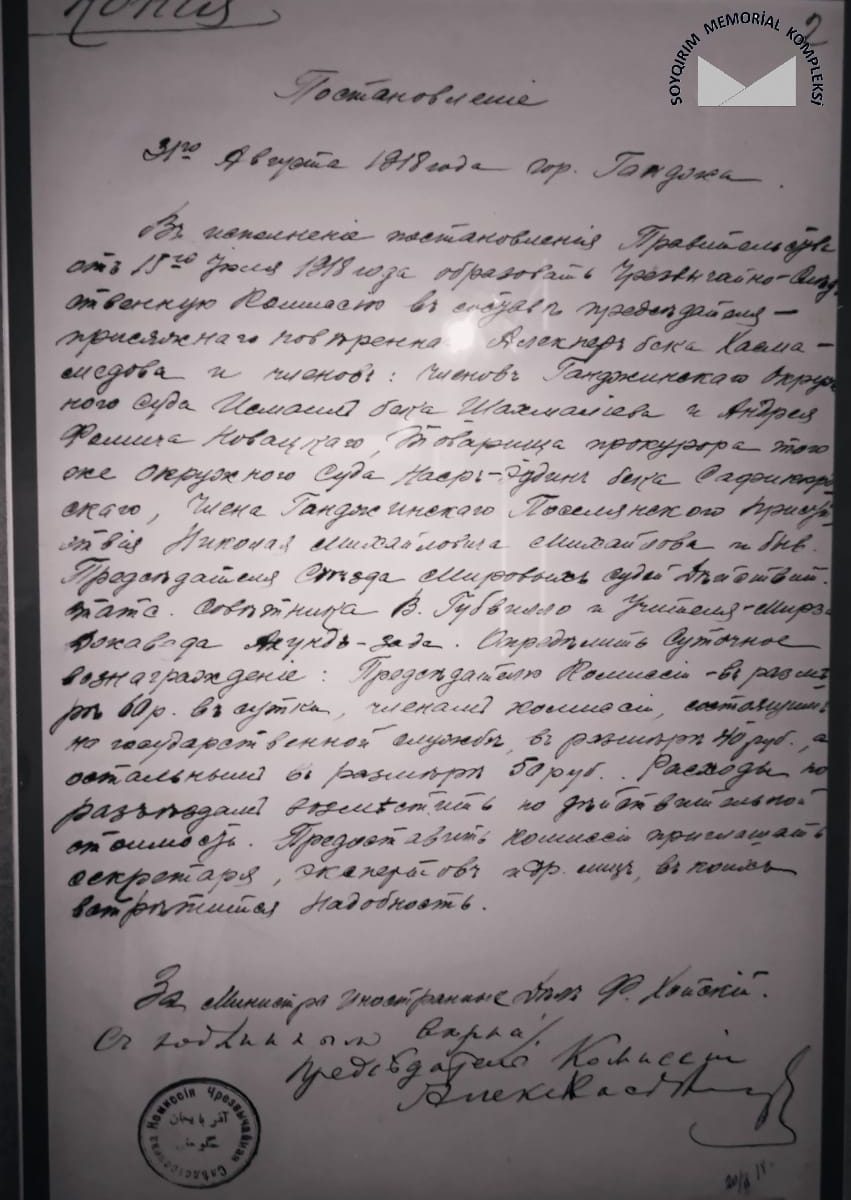 Копія
2
SOYQIRIM MEMORİAL KOMPLEKSİ
Постановленіе
31го Августа 1918 года гор. Ганджа.
Въ исполненіе постановленія Правительства
отъ 15го Іюля 1918 года образовать Чрезвычайно-Слѣд
ственную Комиссію въ составѣ предсѣдателя –
присяжнаго повѣренна Алекперъ бека Хасма-
медова и членовъ: членовъ Ганджинскаго Окруж
ного Суда Исмаилъ бека Шахмаліева и Андрея
Фомича Новацкаго, Товарища прокурора того
же Окружного Суда Насръ-Эддинъ бека Сафикюрд
скаго, Члена Ганджинскаго Поселянского Присут
ствія Николая Михайловича Михайлова и бив.
Предсѣдателя Съѣзда Мировыхъ судей Дѣйствит.
статс. совѣтника В. Гудвилло и Учителя-Мирза
Джавада Ахундъ-заде. Опредѣлить Суточное
вознагражденіе: Предсѣдателю Комиссіи – въ размѣ
рѣ 60 р. въ сутки, членамъ комиссіи, состоящимъ
на государственной службѣ, въ размѣрѣ 40 руб., а
остальнымъ въ размѣрѣ 50 руб.. Расходы по
разъѣздамъ возмѣстить по дѣйствительной
стоимости. Предоставить комиссіи приглашать
секретаря, экспертовъ и др. лицъ, въ коихъ
встрѣтится надобность.
За Министра Иностранные дѣлъ Ф. Хойскій.
Съ подлиннымъ вѣрно:
Предсѣдатель Комиссіи
Алек Хасм
Чрезвычайная Слѣдственная Комиссія
آذربایجان
حکومتی